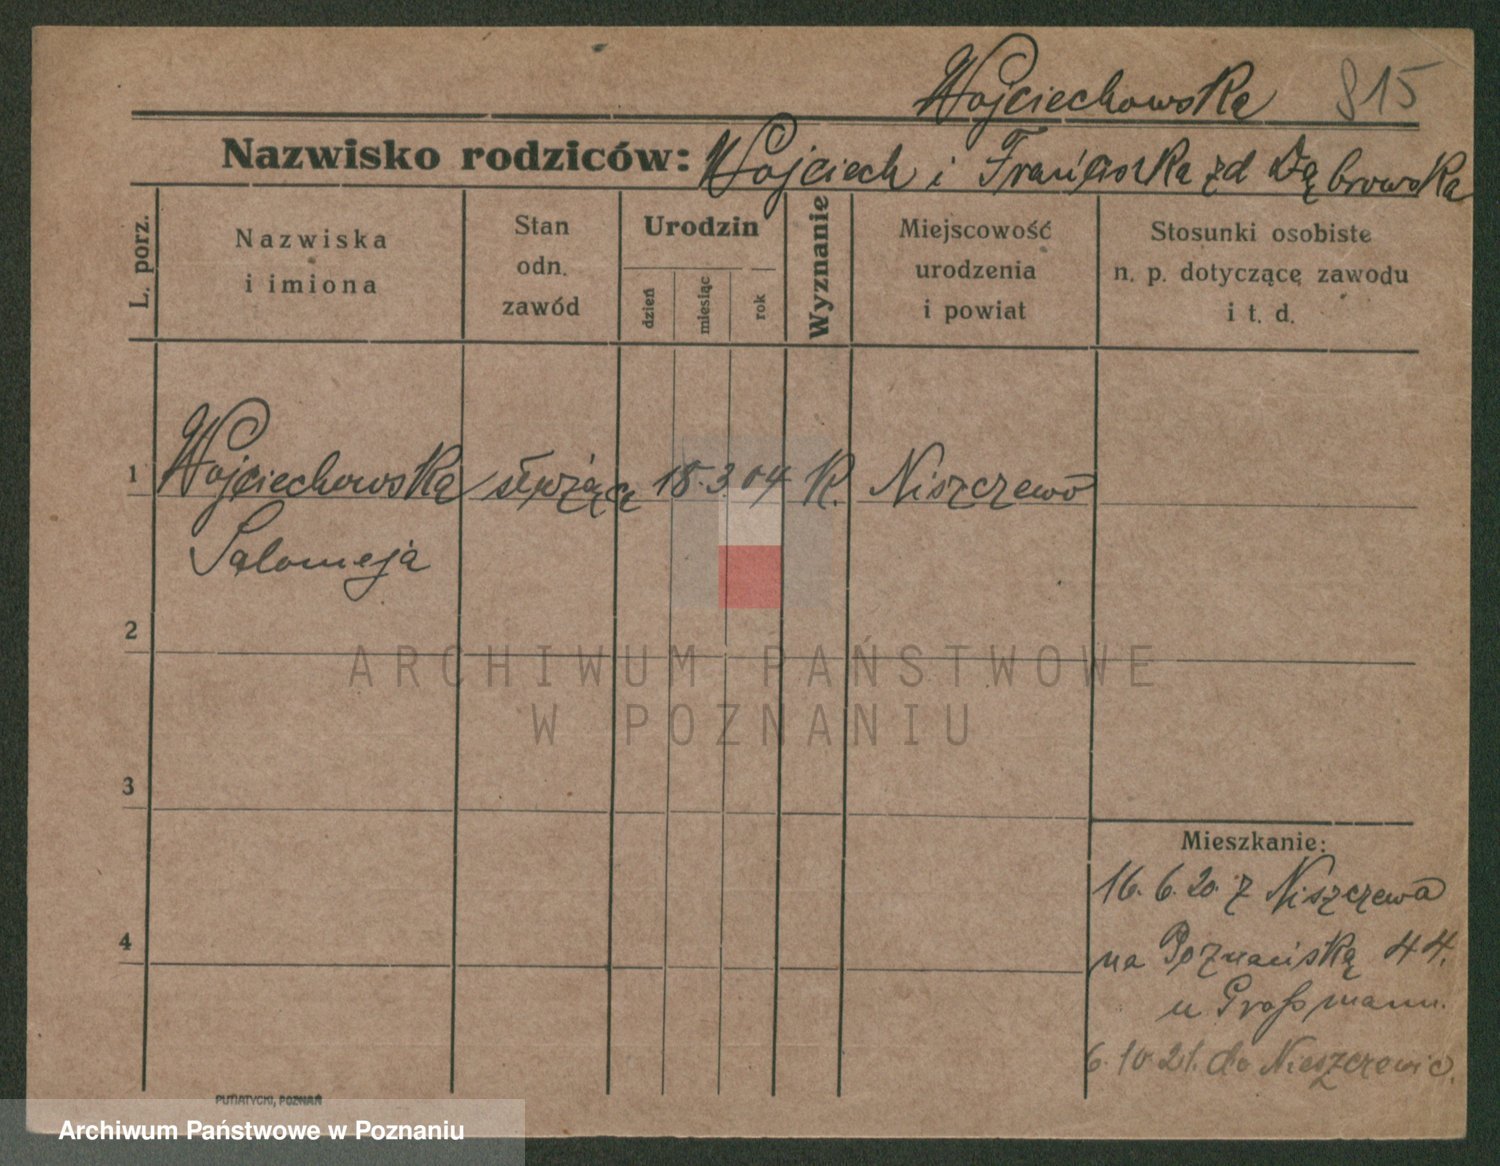 Wojciechowska 815
Nazwisko rodziców: Wojciech i Franciszka zd Dąbrowska
L. porz.
Nazwiska
i imiona
Stan
odn.
zawód
Urodzin
dzień
miesiąc
rok
Wyznanie
Miejscowość
urodzenia
i powiat
Stosunki osobiste
n. p. dotyczące zawodu
i t. d.
1 Wojciechowska służąca 18. 3. 04 K. Niszczewo
Salomeja
2
3
4
Mieszkanie:
16. 6. 20. z Niszczewa
na Poznańską 44.
u Großmann.
6. 10. 21. do Nieszczewic.
PUTIATYCKI, POZNAŃ
ARCHIWUM PAŃSTWOWE
W POZNANIU
Archiwum Państwowe w Poznaniu